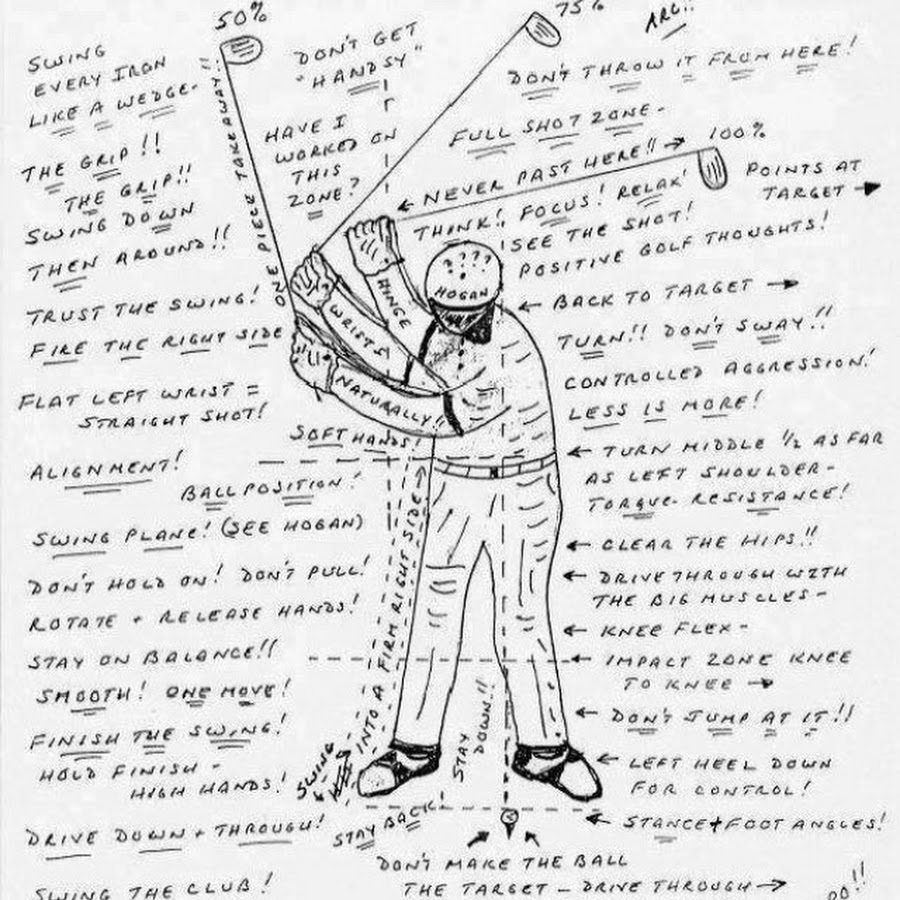 50%
75%
ARC!!
SWING
EVERY IRON
LIKE A WEDGE-
DON'T GET
"HANDSY"
DON'T THROW IT FROM HERE!
HAVE I
WORKED ON
THIS
ZONE?
FULL SHOT ZONE-
← NEVER PAST HERE!! →
100%
POINTS AT
TARGET →
THE GRIP!!
THE GRIP!!
SWING DOWN
THEN AROUND!!
ONE PIECE TAKEAWAY!!
THINK!, FOCUS! RELAX!
SEE THE SHOT!
POSITIVE GOLF THOUGHTS!
? ? ? ?
HOGAN
HINGE
WRISTS
NATURALLY!!
TRUST THE SWING!
FIRE THE RIGHT SIDE
FLAT LEFT WRIST =
STRAIGHT SHOT!
SOFT HANDS!
ALIGNMENT!
BALL POSITION!
SWING PLANE! (SEE HOGAN)
DON'T HOLD ON! DON'T PULL!
ROTATE + RELEASE HANDS!
STAY ON BALANCE!!
SMOOTH! ONE MOVE!
FINISH THE SWING!
HOLD FINISH -
HIGH HANDS!
DRIVE DOWN + THROUGH!
SWING THE CLUB!
← BACK TO TARGET →
TURN!! DON'T SWAY!!
CONTROLLED AGGRESSION!
LESS IS MORE!
← TURN MIDDLE 1/2 AS FAR
AS LEFT SHOULDER-
TORQUE- RESISTANCE!
← CLEAR THE HIPS!!
← DRIVE THROUGH WITH
THE BIG MUSCLES-
← KNEE FLEX-
← IMPACT ZONE KNEE
TO KNEE →
← DON'T JUMP AT IT!!
← LEFT HEEL DOWN
FOR CONTROL!
← STANCE + FOOT ANGLES!
SWING
INTO A FIRM RIGHT SIDE →
STAY
DOWN!!
STAY BACK
DON'T MAKE THE BALL
THE TARGET - DRIVE THROUGH →